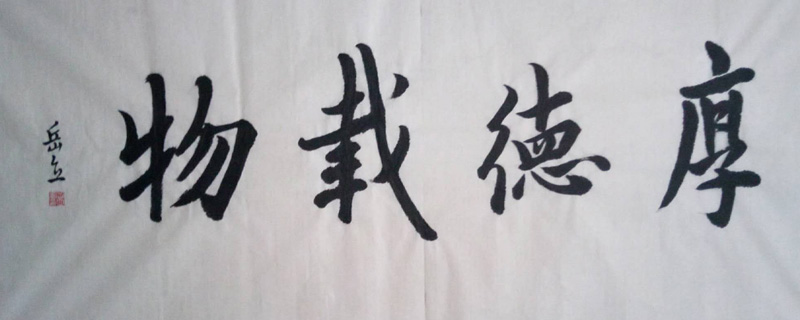 厚德载物
岳立